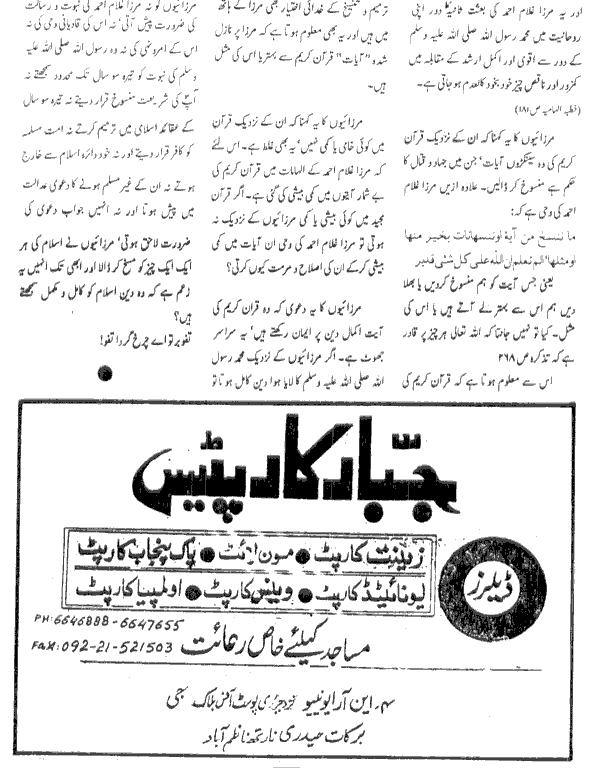 اور یہ مرزا غلام احمد کی بعثت ثانیہ کا دور اپنی
روحانیت میں محمد رسول اللہ صلی اللہ علیہ وسلم
کے دور سے اقوی اور اکمل ارشد کے مقابلہ میں
کمزور اور ناقص چیز خود بخود کالعدم ہو جاتی ہے۔
(خطبہ الہامیہ ص ۱۸۱)
مرزائیوں کا یہ کہنا کہ ان کے نزدیک قرآن
کریم کی وہ سینکڑوں آیات' جن میں جہاد و قتال کا
حکم ہے منسوخ کر ڈالیں۔ علاوہ ازیں مرزا غلام
احمد کی وحی ہے کہ:
ما ننسخ من آیة اوننسهانات بخیر منها
اومثلها'الم تعلم ان الله علی کل شئی قدیر
یعنی جس آیت کو ہم منسوخ کردیں یا بھلا
دیں ہم اس سے بہتر لے آتے ہیں یا اس کی
مثل۔ کیا تو نہیں جانتا کہ اللہ تعالی ہر چیز پر قادر
ہے کہ تذکرہ ص ۲۶۸
اس سے معلوم ہوتا ہے کہ قرآن کریم کی
ترمیم و تنسیخ کے خدائی اختیار بھی مرزا کے ہاتھ
میں ہیں اور یہ بھی معلوم ہوتا ہے کہ مرزا پر نازل
شدہ "آیات" قرآن کریم سے بہتر یا اس کی مثل
ہیں۔
مرزائیوں کا یہ کہنا کہ ان کے نزدیک قرآن
میں کوئی خامی یا کمی نہیں' یہ بھی غلط ہے۔ اس لئے
کہ مرزا غلام احمد کے الہامات میں قرآن کریم کی
بے شمار آیتوں میں کمی بیشی کی گئی ہے۔ اگر قرآن
مجید میں کوئی بیشی یا کمی مرزائیوں کے نزدیک نہ
ہوتی تو مرزا غلام احمد کی وحی ان آیات میں کمی
بیشی کرکے ان کی اصلاح و مرمت کیوں کرتی؟
مرزائیوں کا یہ دعوی کہ وہ قران کریم کی
آیت اکمال دین پر ایمان رکھتے ہیں' یہ سراسر
جھوٹ ہے۔ اگر مرزائیوں کے نزدیک محمد رسول
اللہ صلی اللہ علیہ وسلم کا لایا ہوا دین کامل ہوتا تو
مرزائیوں کو نہ مرزا غلام احمد کی نبوت و رسالت
کی ضرورت پیش آتی' نہ اس کی قادیانی وحی کی نہ
اس کے امر و نہی کی نہ وہ رسول اللہ صلی اللہ علیہ
وسلم کی نبوت کو تیرہ سو سال تک محدود سمجھتے نہ
آپؐ کی شریعت منسوخ قرار دیتے نہ تیرہ سو سال
کے عقائد اسلامی میں ترمیم کرتے نہ امت مسلمہ
کو کافر قرار دیتے اور نہ خود دائرہ اسلام سے خارج
ہوتے نہ ان کے غیر مسلم ہونے کا دعوی عدالت
میں پیش ہوتا اور نہ انہیں جواب دعوی کی
ضرورت لاحق ہوتی' مرزائیوں نے اسلام کی ہر
ایک ایک چیز کو مسخ کر ڈالا اور ابھی تک انہیں یہ
زعم ہے کہ وہ دین اسلام کو کامل و مکمل سمجھتے
ہیں؟
تفو بر تو اے چرخ گرداں تفو!
جبّار کارپٹس
ڈیلرز
زینت کارپٹ • مون لائٹ • پاک پنجاب کارپٹ
یونائیٹڈ کارپٹ • وینس کارپٹ • اولمپیا کارپٹ
مساجد کیلئے خاص رعائت
PH: 6646888 - 6647655
FAX: 092-21-521503
۴۔ این آر ایونیو نزد حیدری پوسٹ آفس بلاک جی
برکات حیدری نارتھ ناظم آباد